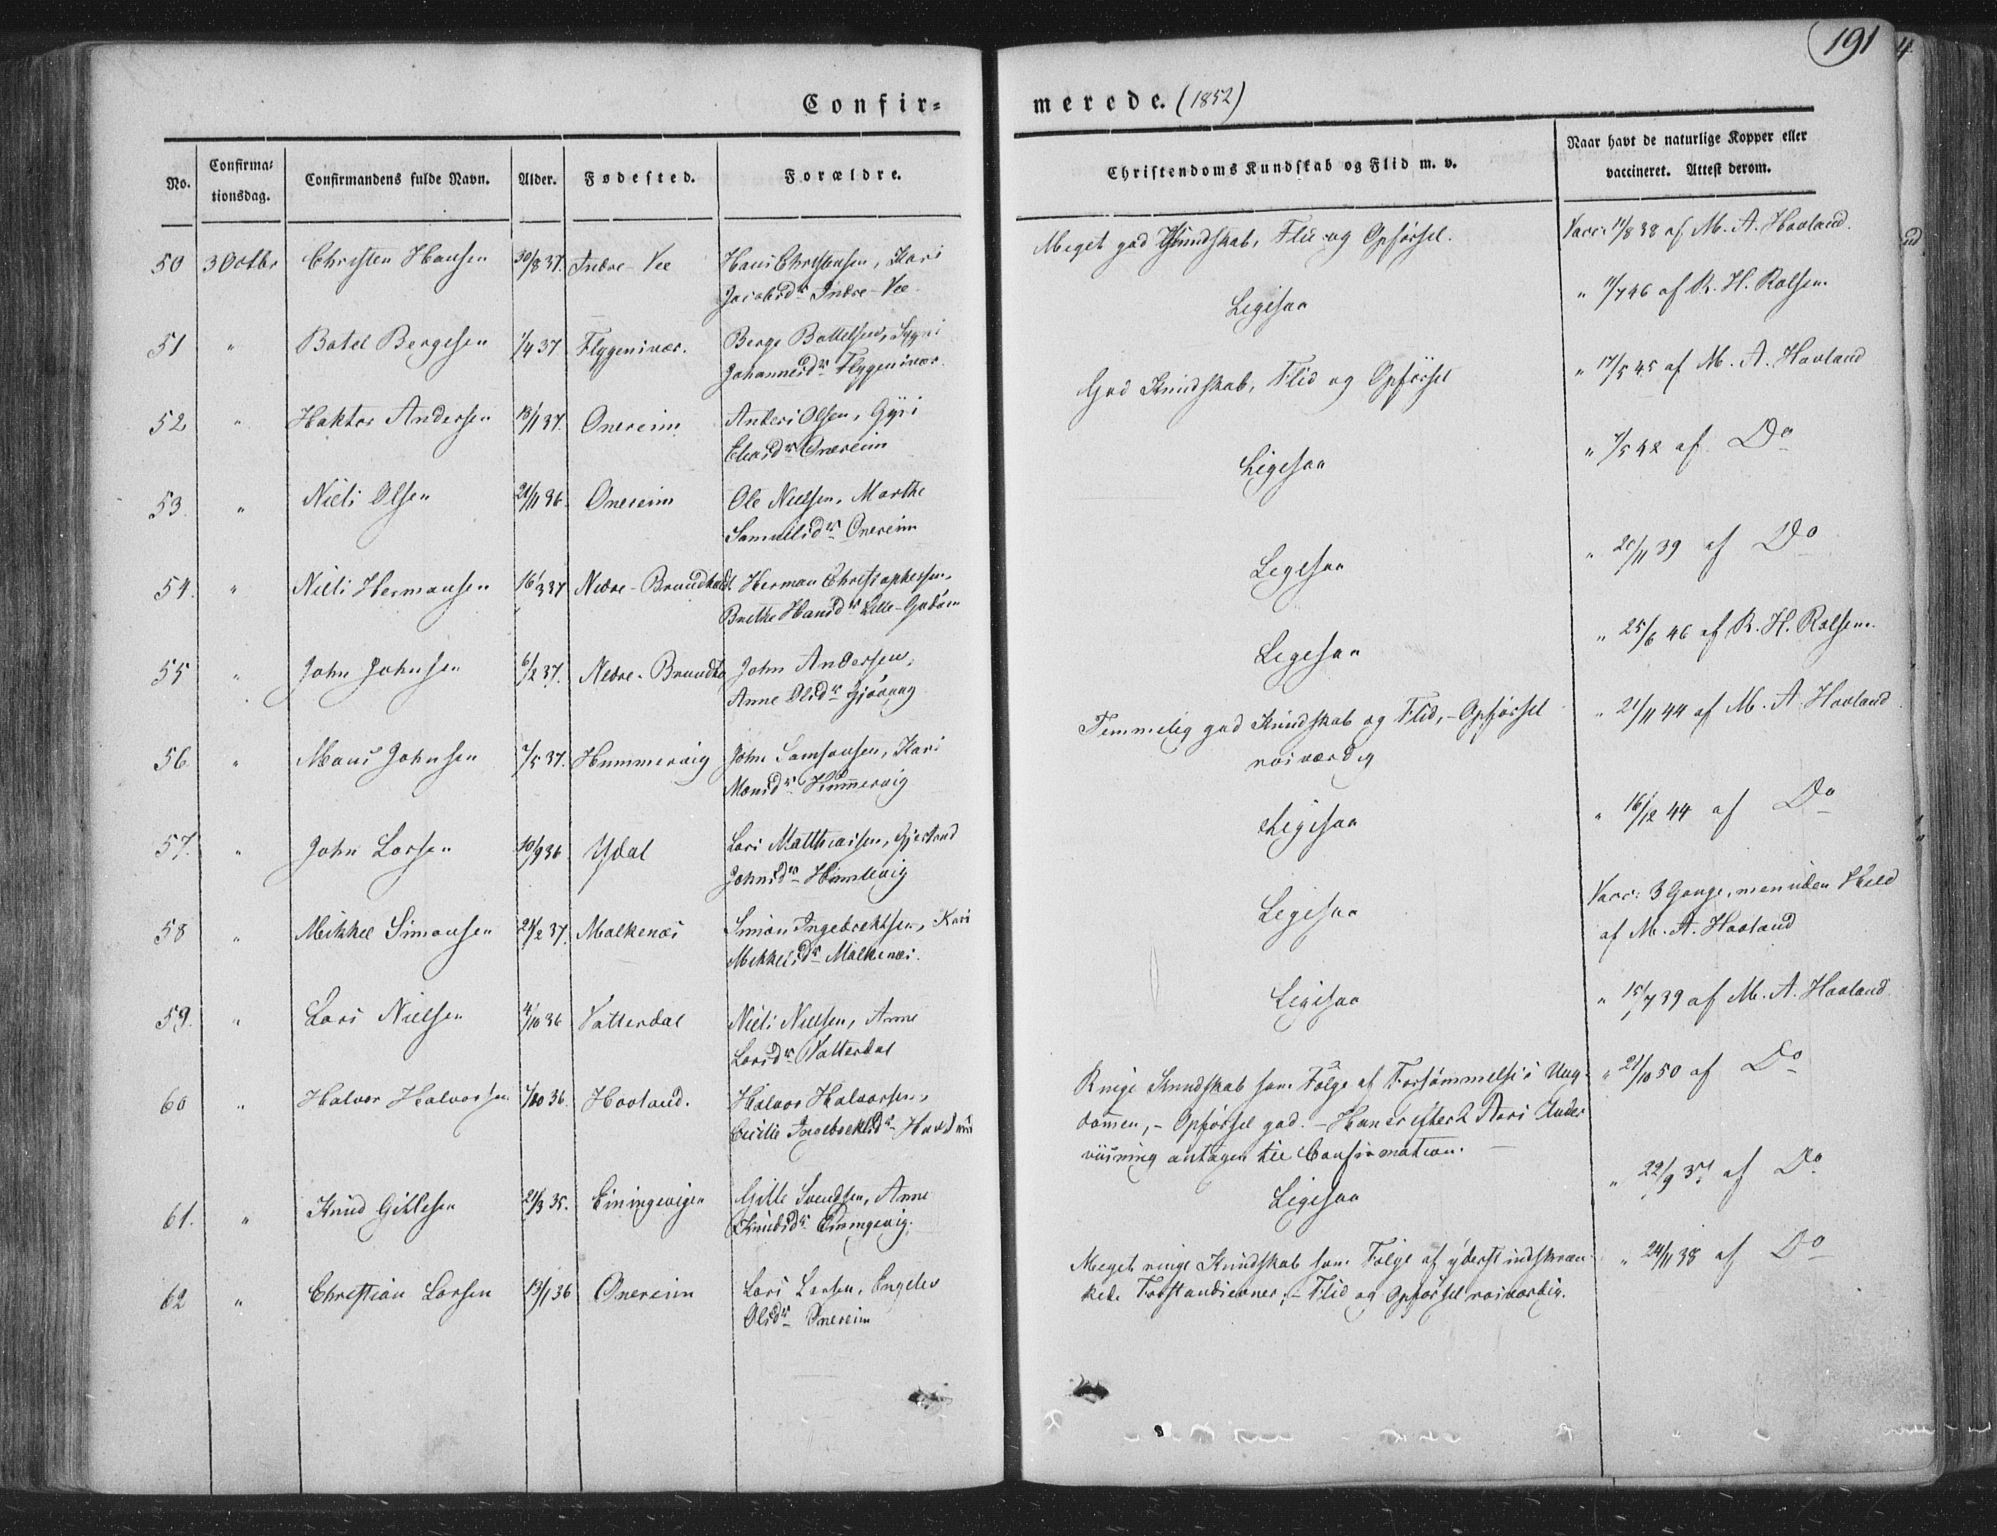 191
Confir-
merede. (1852)
No.
Confirma-
tionsdag.
Confirmandens fulde Navn.
Alder.
Fødested.
Forældre.
Christendoms Kundskab og Flid m. v.
Naar havt de naturlige Kopper eller
vaccineret. Attest derom.
50 3 Octbr Christen Hansen 30/8 37. Indre-Vee Hans Christensen, Kari
Jacobsdr Indre-Vee.
Meget god Kundskab, Flid og Opførsel. Vacc: 11/8 38 af M. A. Havland.
51 " Botel Bergesen 1/4 37 Flygenivær. Berge Bottelsen, Sygni
Johannesdr Flygenivær.
Ligesaa " 11/7 46 af R. H. Rolsen.
52 " Haktor Andersen 13/1 37. Onereim Anders Olsen, Gyri
Onereim
God Kundskab, Flid og Opførsel " 17/5 45 af M. A. Havland
53. " Niels Olsen 21/11 36. Onereim Ole Nielsen, Marthe
Samuelsdr Onereim
Ligesaa " 7/5 42 af Do
54. " Niels Hermansen 16/3 37 Nedre-Brundtland Herman Christophersen,
Brethe Hansdr Lille-
Ligesaa " 20/11 39 af Do
55 " John Johnsen 6/2 37. Nedre-Brundtla John Andersen,
Anne Olsdr
Ligesaa " 25/6 46 af R. H. Rolsen.
56. " Mons Johnsen 7/5 37. Hummervig John Samsonsen, Kari
Monsdr Hummervig
Temmelig god Kundskab og Flid, - Opførsel
rosværdig
" 21/11 44 af M. A. Havland
57. " John Larsen 30/9 36 Ydal Lars Matthiassen, Gjertrud
Johnsdr Humlevig
Ligesaa " 16/12 44 af Do
58 " Mikkel Simonsen 21/2 37. Malkenæs Simon Ingebrektsen, Kari
Mikkelsdr Malkenæs.
Ligesaa Vacc: 3 Gange, men uden Held
af M. A. Havland
59. " Lars Nielsen 4/10 36 Vatterdal Niels Nielsen, Anne
Larsdr Vatterdal
Ligesaa " 15/7 39 af M. A. Havland
60 " Halvor Halvorsen 7/10 36. Havland. Halvor Halvorsen,
Cecilie Ingebrektsdr
Ringe Kundskab som Følge af Forsømmelse i Ung-
dommen, - Opførsel god. - Han er efter 2 Aars Under
viisning antagen til Confirmation.
" 21/10 50 af Do
61. " Knud Gitlesen 21/3 35. Einingevigen Gitle Svendsen, Anne
Knudsdr Einingevig.
Ligesaa " 22/9 37 af Do
62 " Christian Larsen 13/1 36 Onereim Lars Larsen, Engelev
Olsdr Onereim
Meget ringe Kundskab som Følge af yderst indskræn-
kede Forstandsevner, - Flid og Opførsel rosværdig.
" 24/11 38 af Do